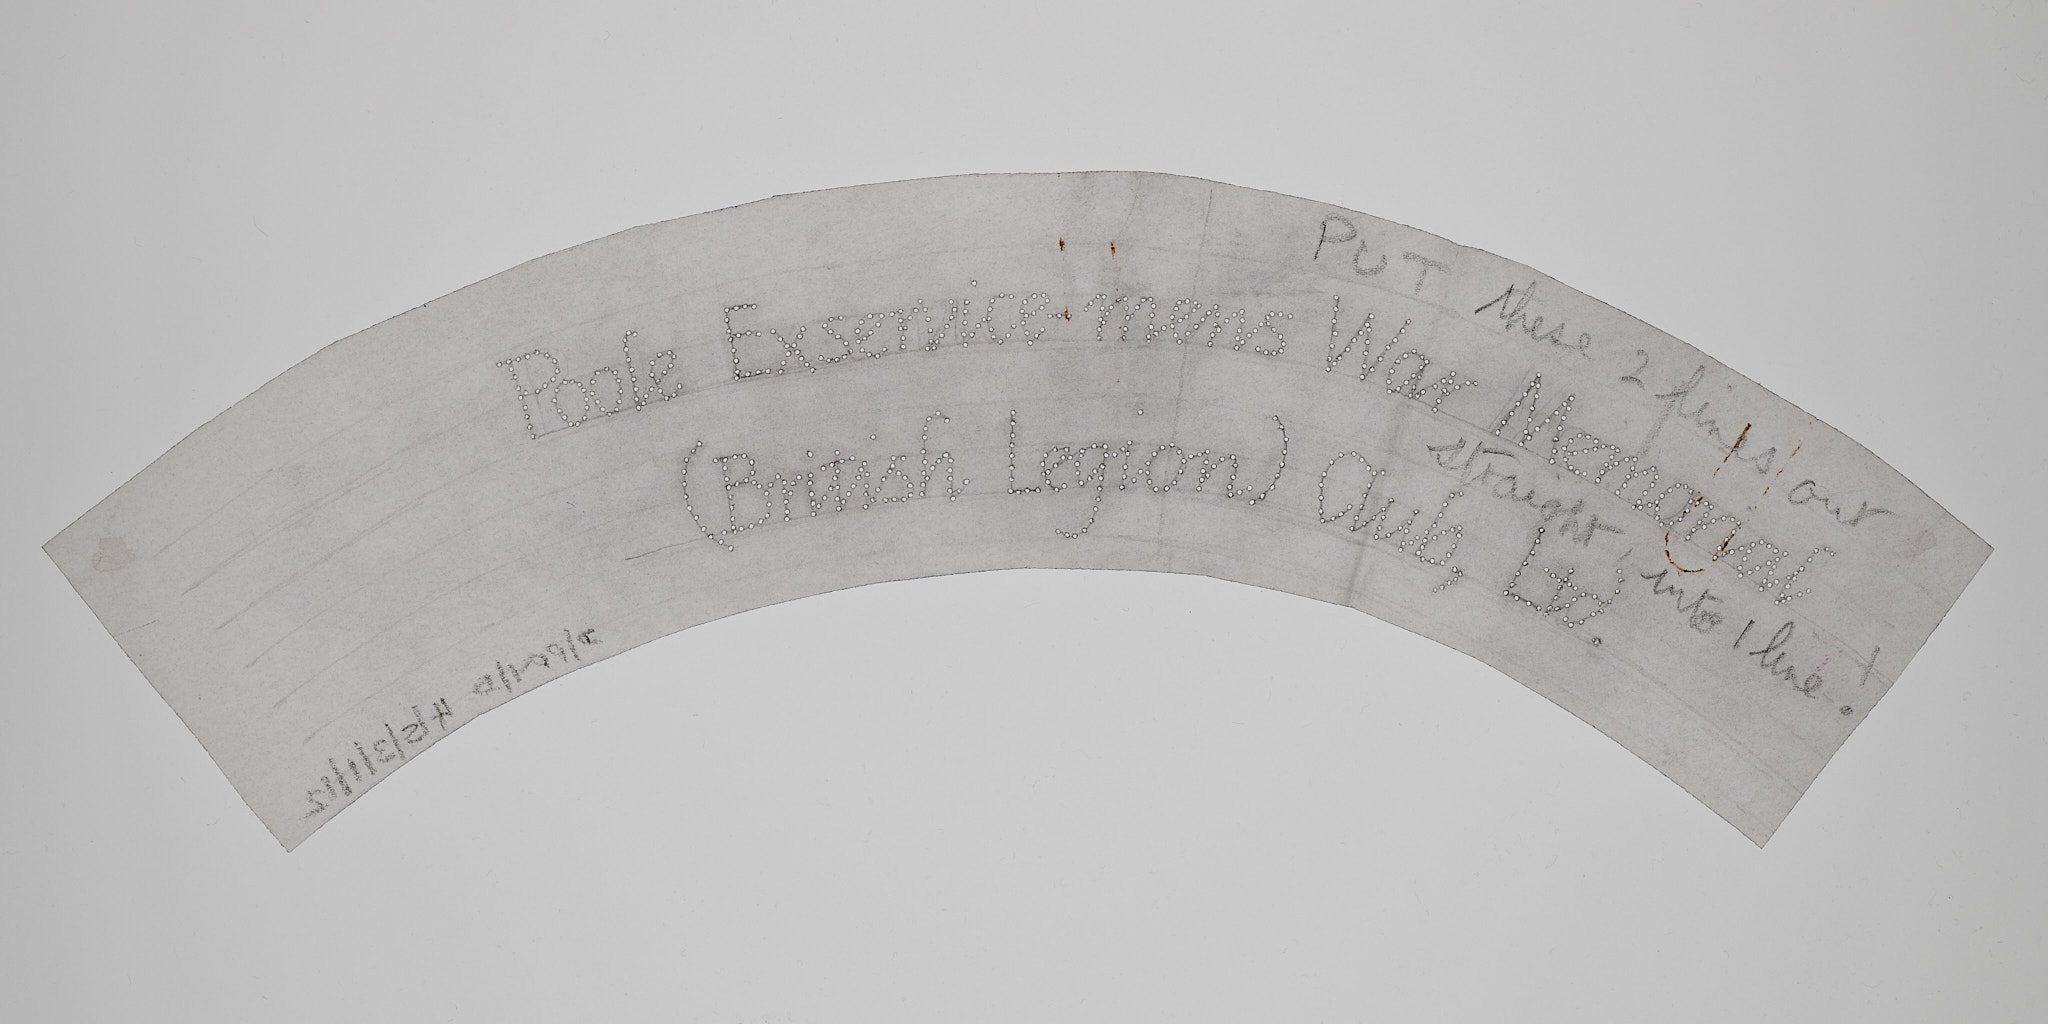 PUT these 2 lines out
straight, into 1 line!
Poole Exservice-mens War Memorial
(British Legion) Club, Ltd.